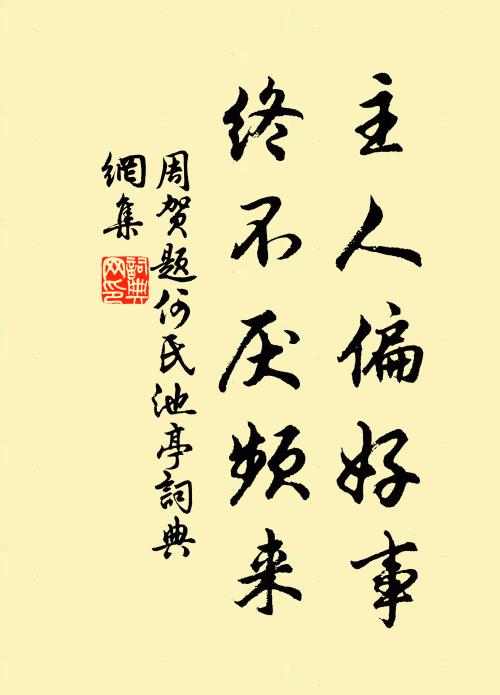 主人偏好事
终不厌频来
周贺题何氏池亭詞典
網集
詞典網印